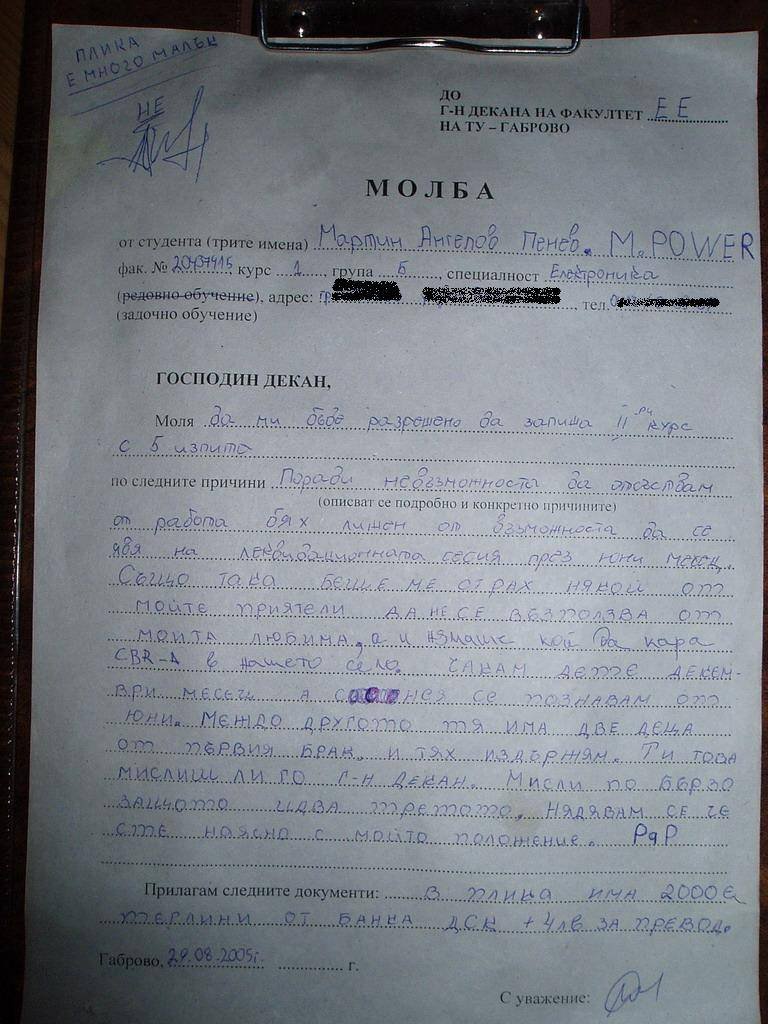 ПЛИКА
Е МНОГО МАЛЪК
НЕ
ДО
Г-Н ДЕКАНА НА ФАКУЛТЕТ ЕЕ
НА ТУ – ГАБРОВО
МОЛБА
от студента (трите имена) Мартин Ангелов Пенев. M.POWER
фак. № 20437415 курс 1, група Б, специалност Електроника
(редовно обучение), адрес: гр., тел.
(задочно обучение)
ГОСПОДИН ДЕКАН,
Моля да ми бъде разрешено да запиша II ри курс
с 5 изпита
по следните причини Поради невъзможноста да отсъствам
(описват се подробно и конкретно причините)
от работа бях лишен от възможноста да се
явя на ликвидационната сесия през юни месец.
Също така беше ме страх някой от
мойте приятели да не се възползва от
моита любима, а и нямаше кой да кара
CBR-А в нашето село. Чакам дете декем-
ври месец а с нея се познавам от
юни. Междо другото тя има две деца
от първия брак, и тях издържам. Ти това
мислиш ли го г-н Декан. Мисли по бързо
защото идва третото. Нядявам се че
сте наясно с мойто положение. РqР
Прилагам следните документи: в плика има 2000 €
терлини от банка ДСК + 4лв за превод.
Габрово, 29.08.2005г. г.
С уважение: